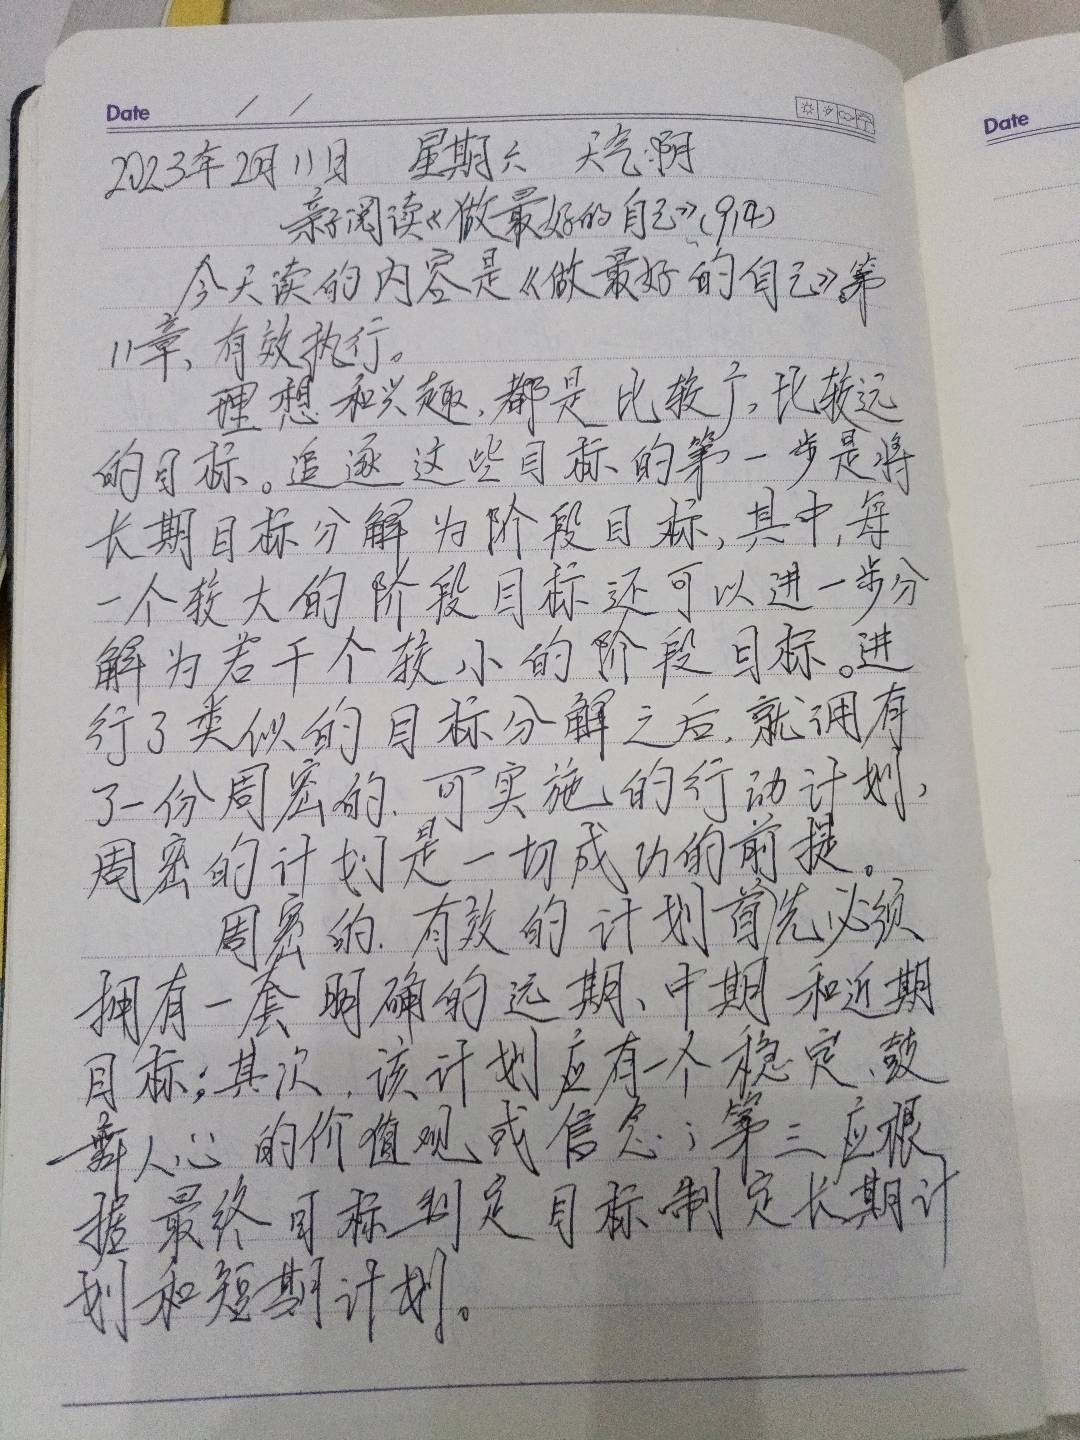 Date / /
2023年2月11日 星期六 天气:阴
亲子阅读《做最好的自己》(914)
今天读的内容是《做最好的自己》第
11章、有效执行。
理想和兴趣,都是比较广,比较远
的目标。追逐这些目标的第一步是将
长期目标分解为阶段目标,其中,每
一个较大的阶段目标还可以进一步分
解为若干个较小的阶段目标。进
行了类似的目标分解之后,就拥有
了一份周密的、可实施的行动计划,
周密的计划是一切成功的前提。
周密的、有效的计划首先必须
拥有一套明确的远期、中期和近期
目标;其次,该计划应有一个稳定、鼓
舞人心的价值观或信念;第三应根
据最终目标判定目标制定长期计
划和短期计划。
Date